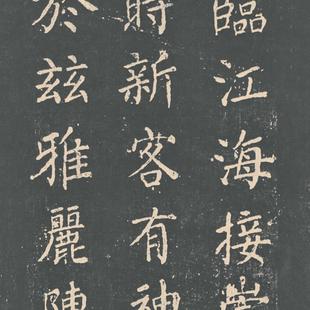 臨江海接
時新客有神
於茲雅麗陳